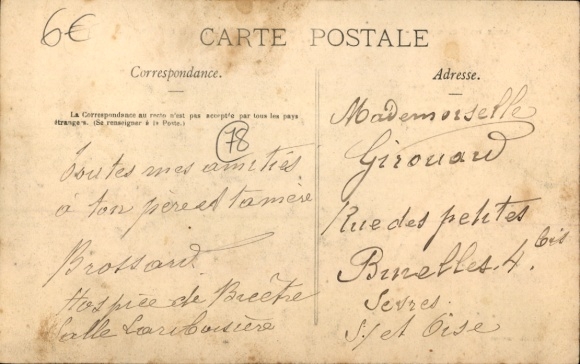 6€
CARTE POSTALE
Correspondance.
La Correspondance au recto n'est pas acceptée par tous les pays
étrangers. (Se renseigner à la Poste.)
78
Toutes mes amitiés
à ton père et ta mère
Brossard
Hospice de Bicêtre
Salle Lariboisière
Adresse.
Mademoiselle
Girouard
Rue des petites
Bruelles. 4. bis
Sevres.
S/ et Oise